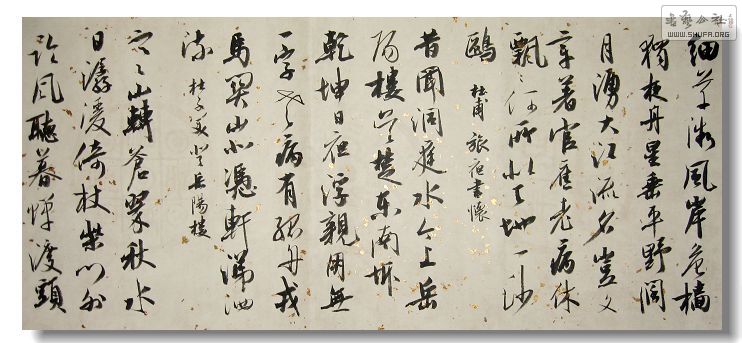 細草微風岸危檣
獨夜舟星垂平野闊
月湧大江流名豈文
章著官應老病休
飄々何所似天地一沙
鷗 杜甫 旅夜書懷
昔聞洞庭水今上岳
陽樓吳楚東南坼
乾坤日夜浮親朋無
一字老病有孤舟戎
馬關山北憑軒涕泗
流 杜子美 登岳陽樓
寒山轉蒼翠秋水
日潺湲倚杖柴門外
臨風聽暮蟬渡頭
书艺公社
WWW.SHUFA.ORG